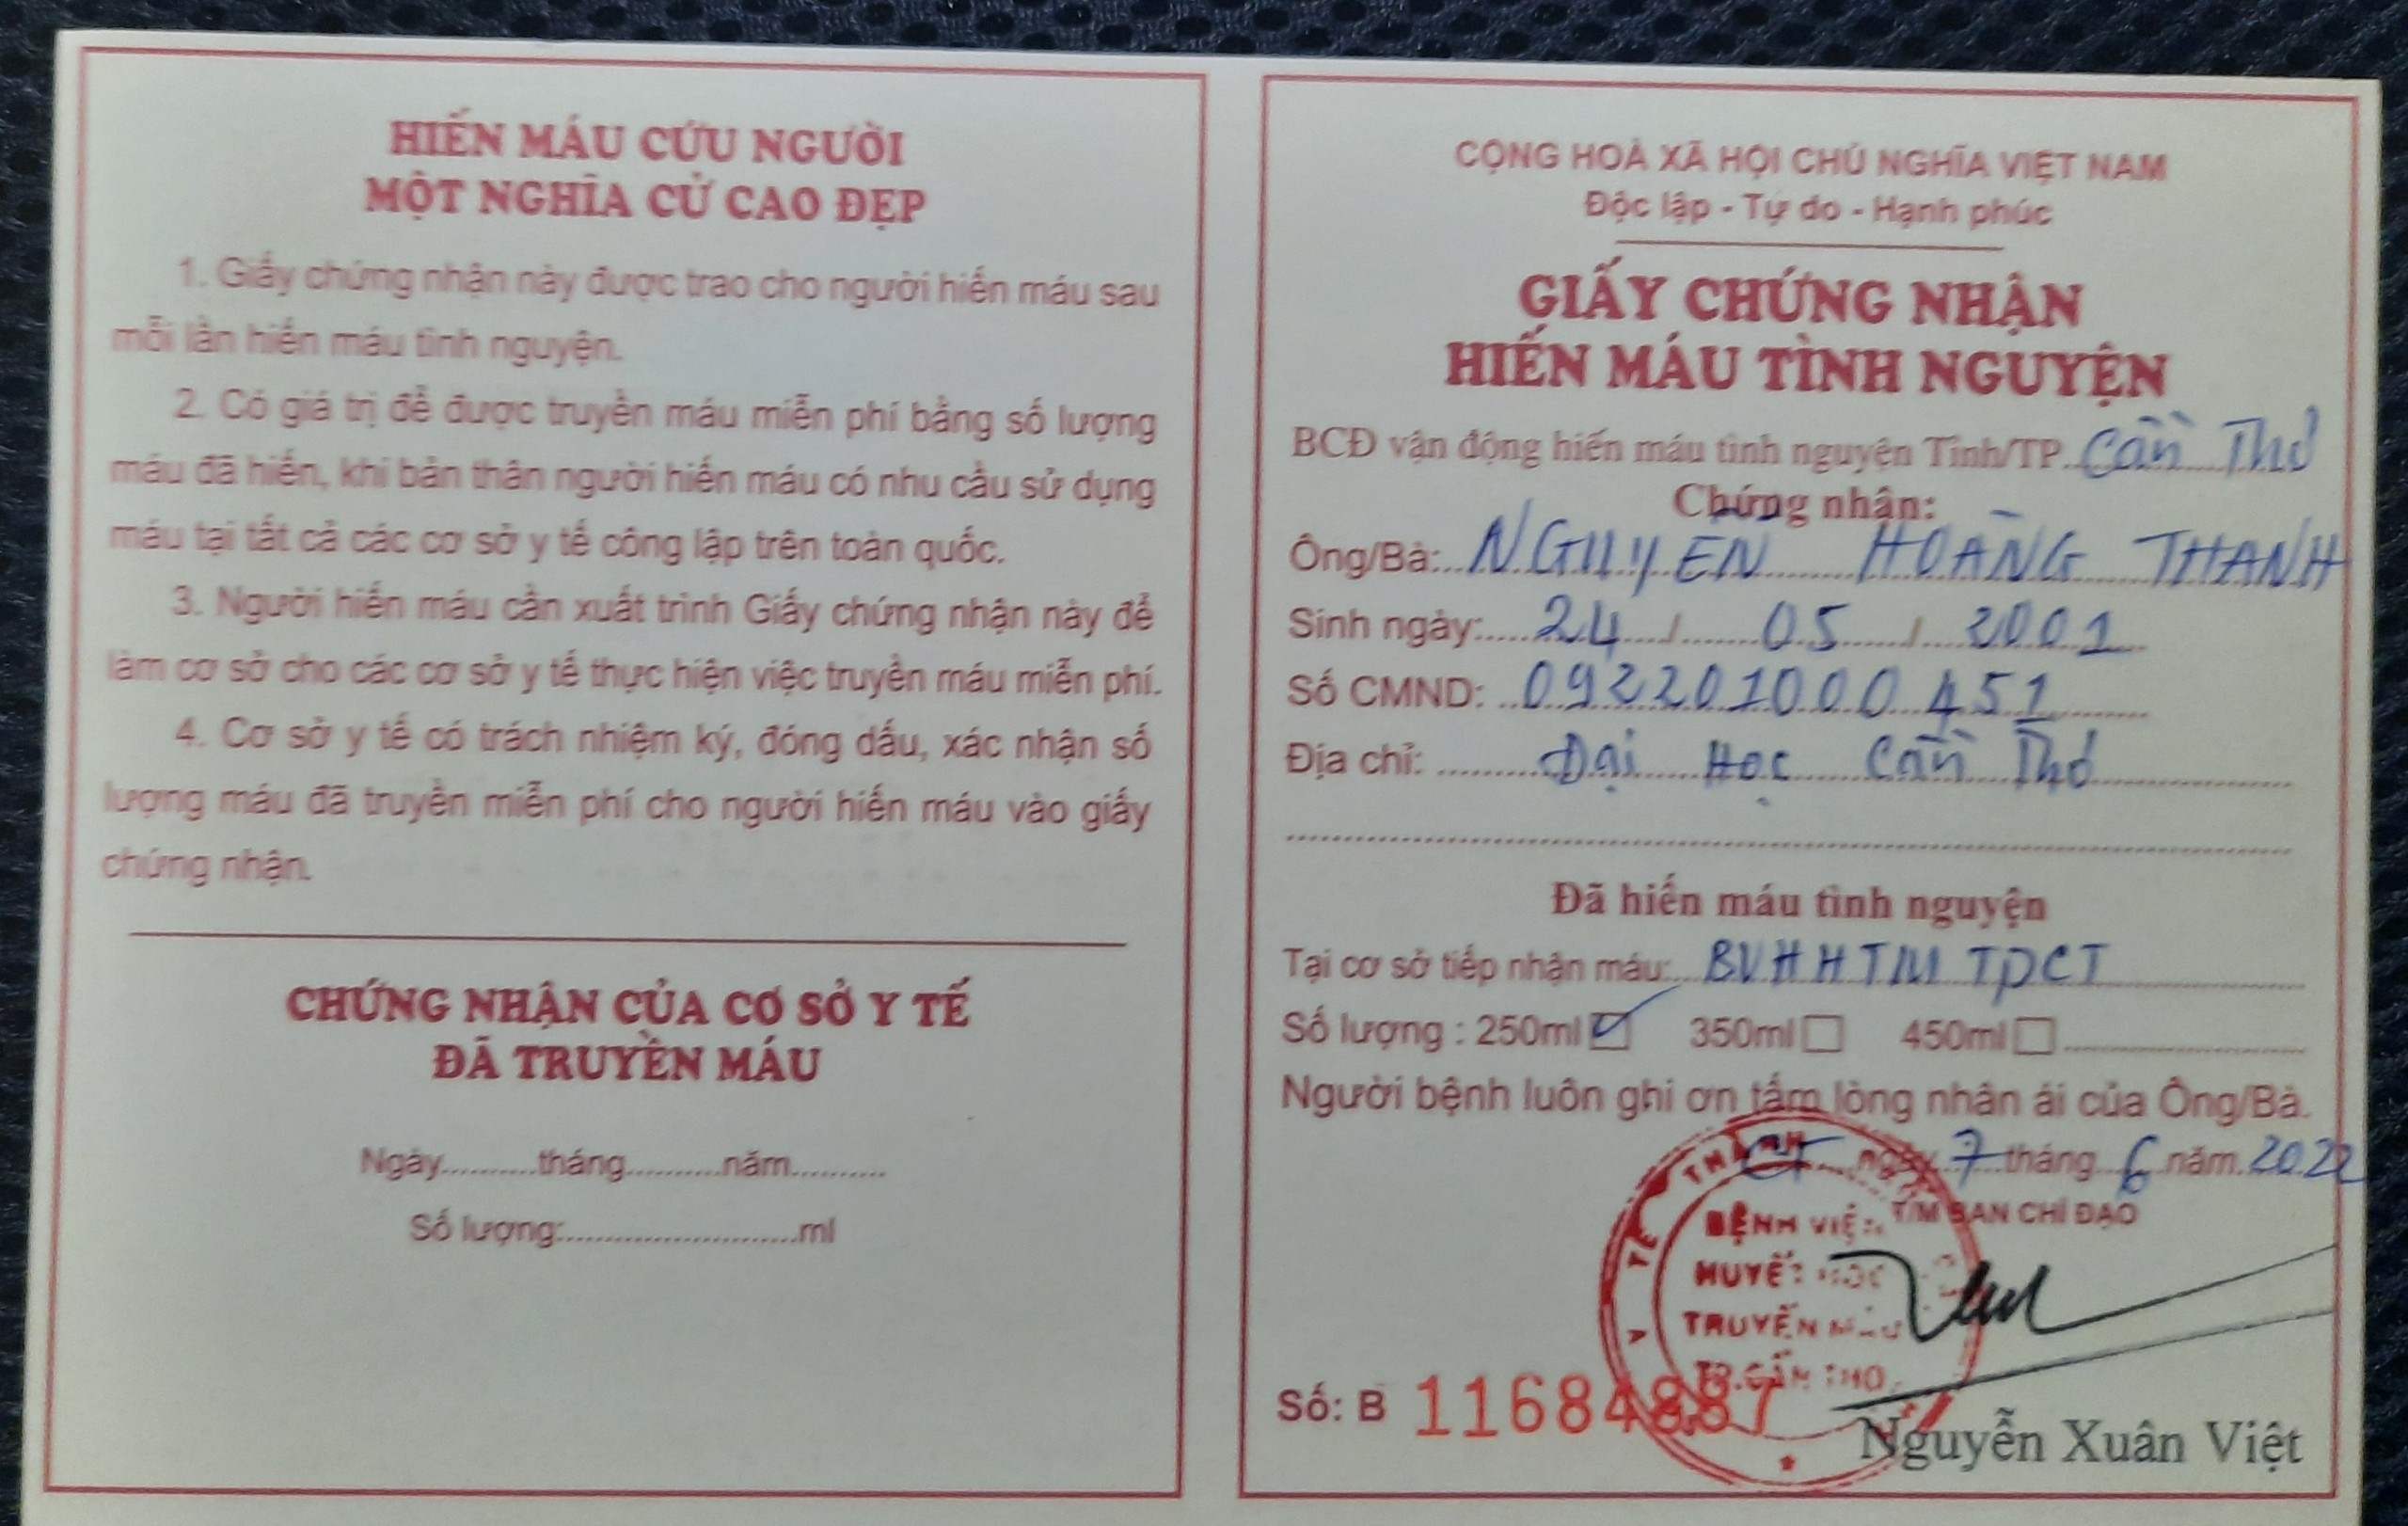 HIẾN MÁU CỨU NGƯỜI
MỘT NGHĨA CỬ CAO ĐẸP
1. Giấy chứng nhận này được trao cho người hiến máu sau
mỗi lần hiến máu tình nguyện.
2. Có giá trị để được truyền máu miễn phí bằng số lượng
máu đã hiến, khi bản thân người hiến máu có nhu cầu sử dụng
máu tại tất cả các cơ sở y tế công lập trên toàn quốc.
3. Người hiến máu cần xuất trình Giấy chứng nhận này để
làm cơ sở cho các cơ sở y tế thực hiện việc truyền máu miễn phí.
4. Cơ sở y tế có trách nhiệm ký, đóng dấu, xác nhận số
lượng máu đã truyền miễn phí cho người hiến máu vào giấy
chứng nhận.
CHỨNG NHẬN CỦA CƠ SỞ Y TẾ
ĐÃ TRUYỀN MÁU
Ngày..........tháng..........năm..........
Số lượng:..........................ml
CỘNG HOÀ XÃ HỘI CHỦ NGHĨA VIỆT NAM
Độc lập - Tự do - Hạnh phúc
GIẤY CHỨNG NHẬN
HIẾN MÁU TÌNH NGUYỆN
BCĐ vận động hiến máu tình nguyện Tỉnh/TP. Cần Thơ
Chứng nhận:
Ông/Bà: NGUYỄN HOÀNG THANH
Sinh ngày: 24 / 05 / 2001
Số CMND: 092201000451
Địa chỉ: Đại Học Cần Thơ
Đã hiến máu tình nguyện
Tại cơ sở tiếp nhận máu: BVHHTM TPCT
Số lượng : 250ml 350ml 450ml
Người bệnh luôn ghi ơn tấm lòng nhân ái của Ông/Bà.
CT ngày 7 tháng 6 năm 2022
T/M BAN CHỈ ĐẠO
Y TẾ THÀNH
BỆNH VIỆN
HUYẾT HỌC
TRUYỀN MÁU
TP.CẦN THƠ
Số: B 11684887
Nguyễn Xuân Việt